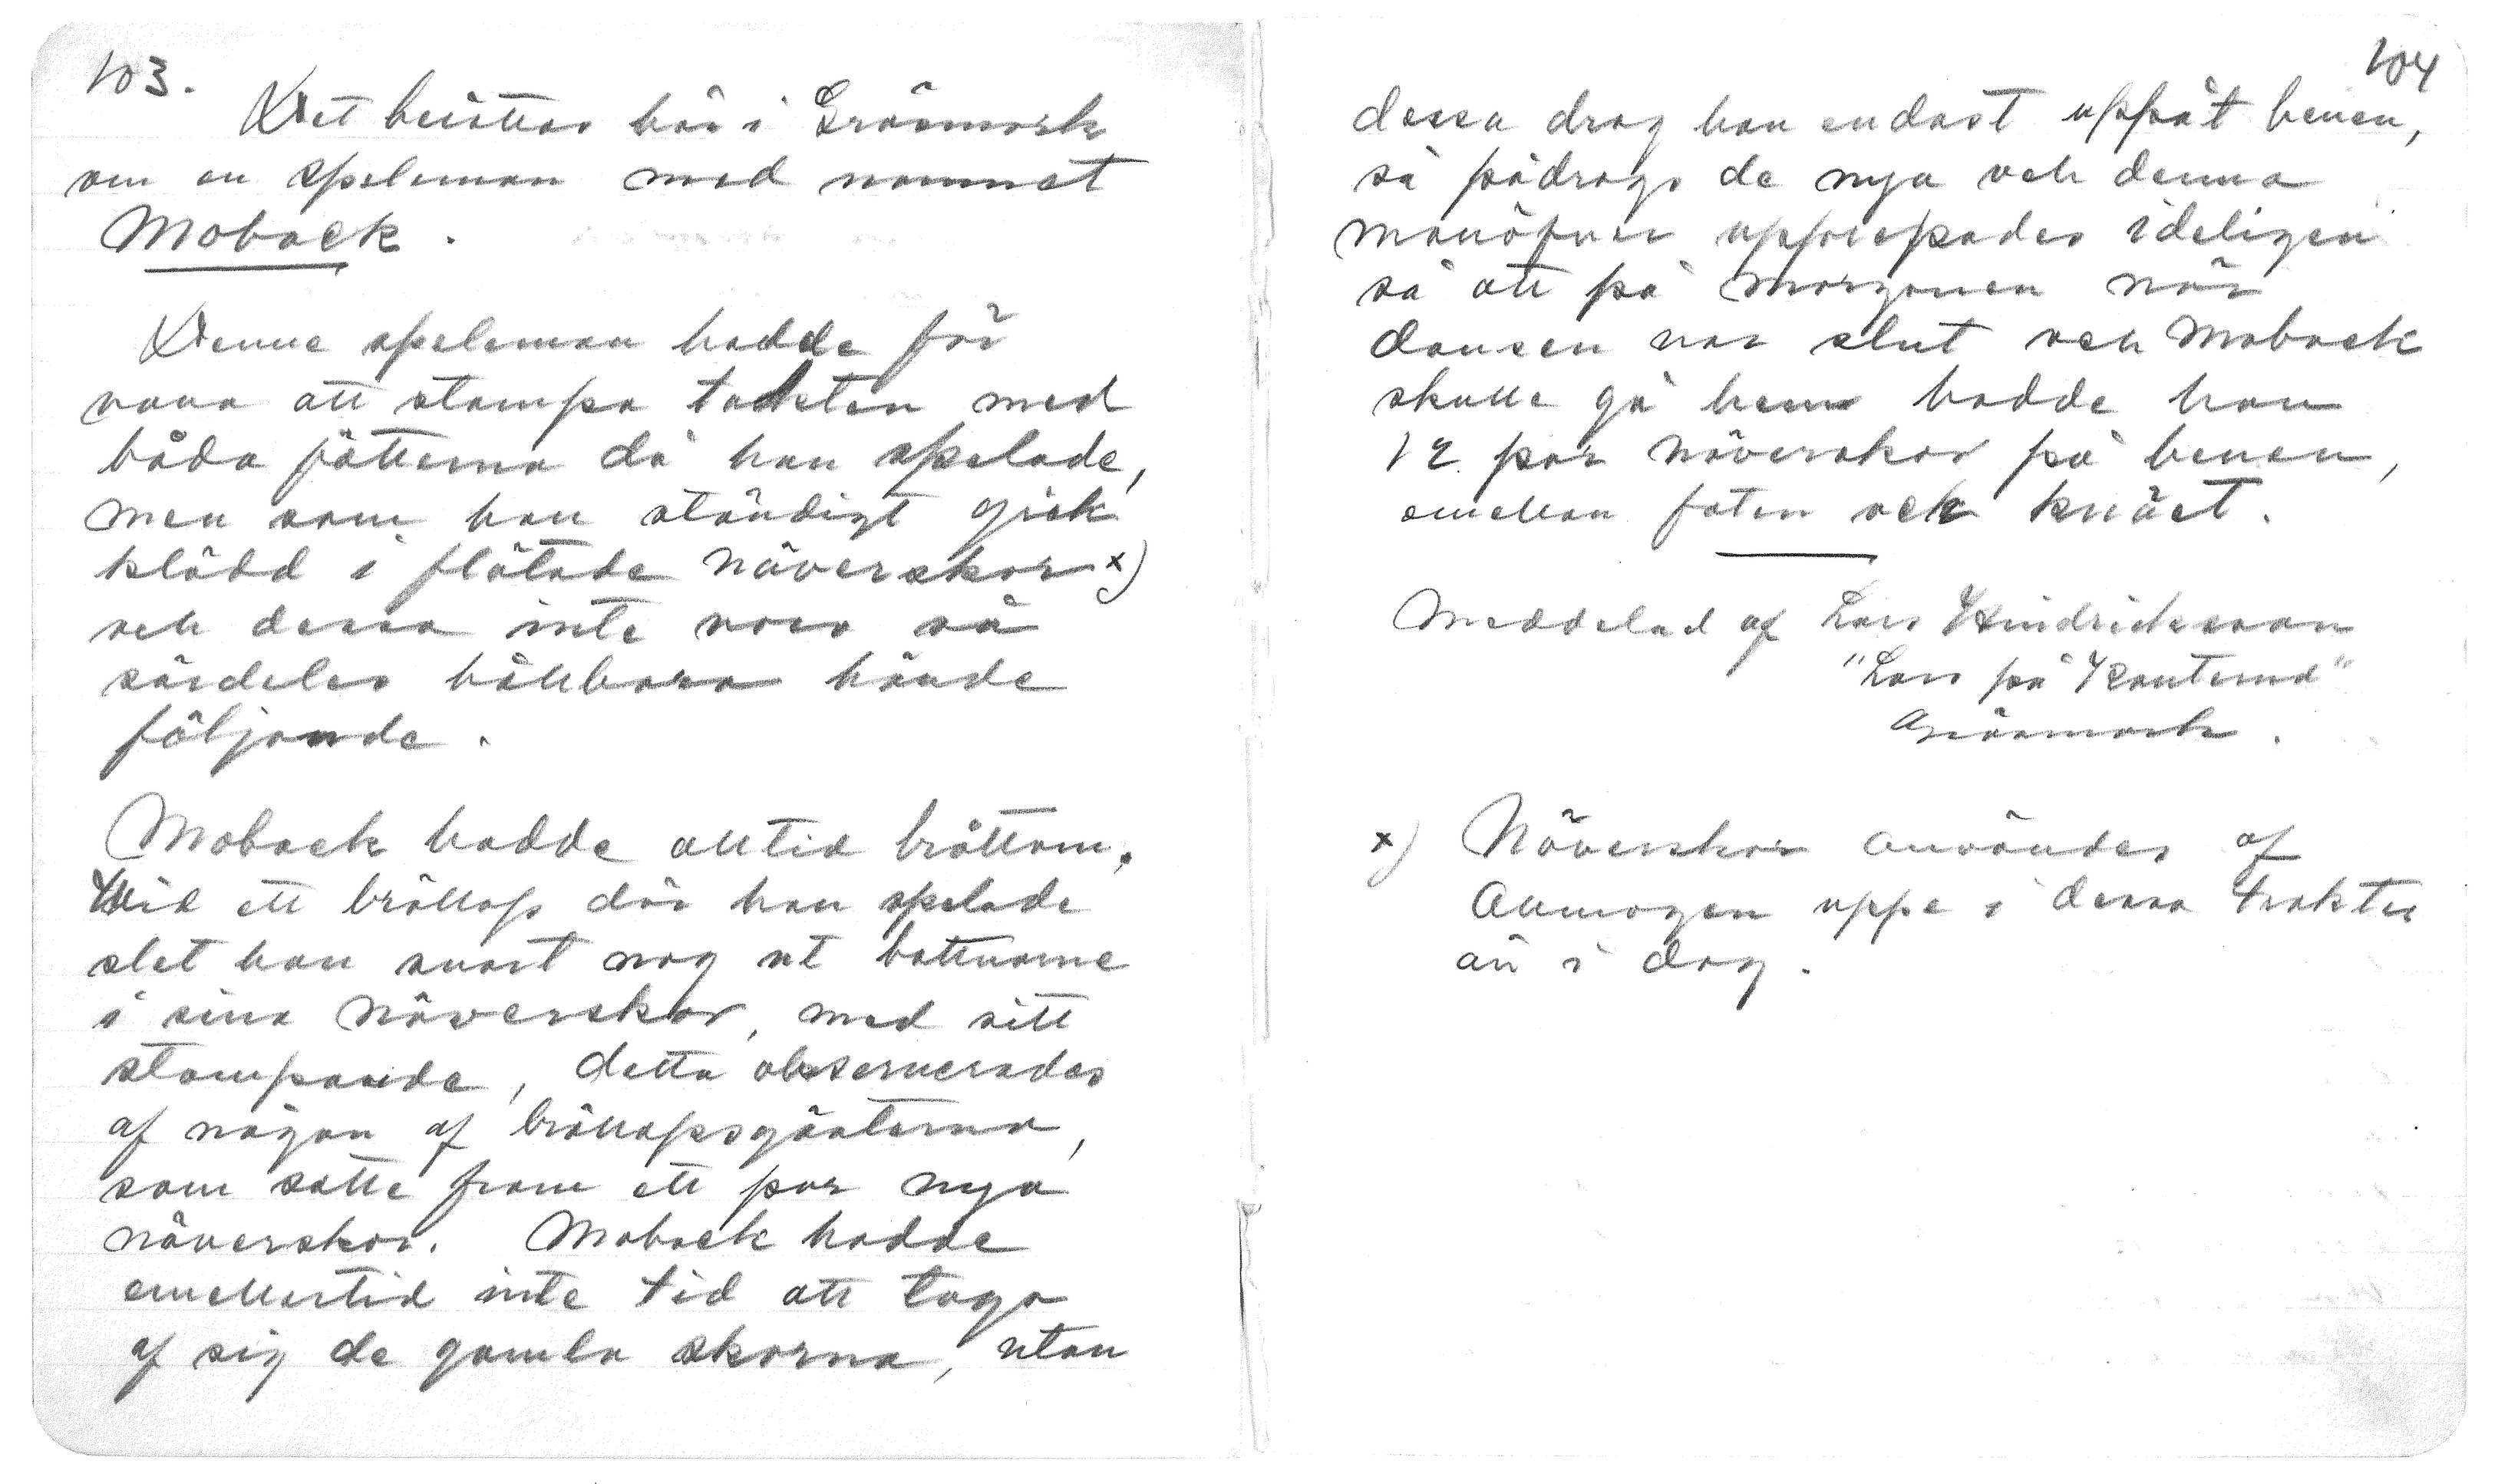 103.
Det berättas här i Gräsmark
om en speleman med namnet
Moback.
Denne speleman hadde för
vana att stampa takten med
båda fötterna då han spelade,
men som han ständigt gick
klädd i flätade näverskor x)
och dessa inte voro så
särdeles hållbara hände
följande.
Moback hadde alltid bråttom.
Vid ett bröllop där han spelade
slet han snart nog ut bottnarne
i sina näverskor, med sitt
stampande, detta observerades
af någon af bröllopsgästerna,
som satte fram ett par nya
näverskor. Moback hadde
emellertid inte tid att taga
af sig de gamla skorna, utan
104
dessa drog han endast uppåt benen,
så pådrogs de nya och denna
manöfver upprepades ideligen
så att på morgonen när
dansen var slut och Moback
skulle gå hem hadde han
12 par näverskor på benen,
emellan foten och knäet.
Meddelad af Lars Hindricksson
"Lars på Kanterna"
Gräsmark.
x) Näverskor användes af
Allmogen uppe i dessa trakter
än i dag.